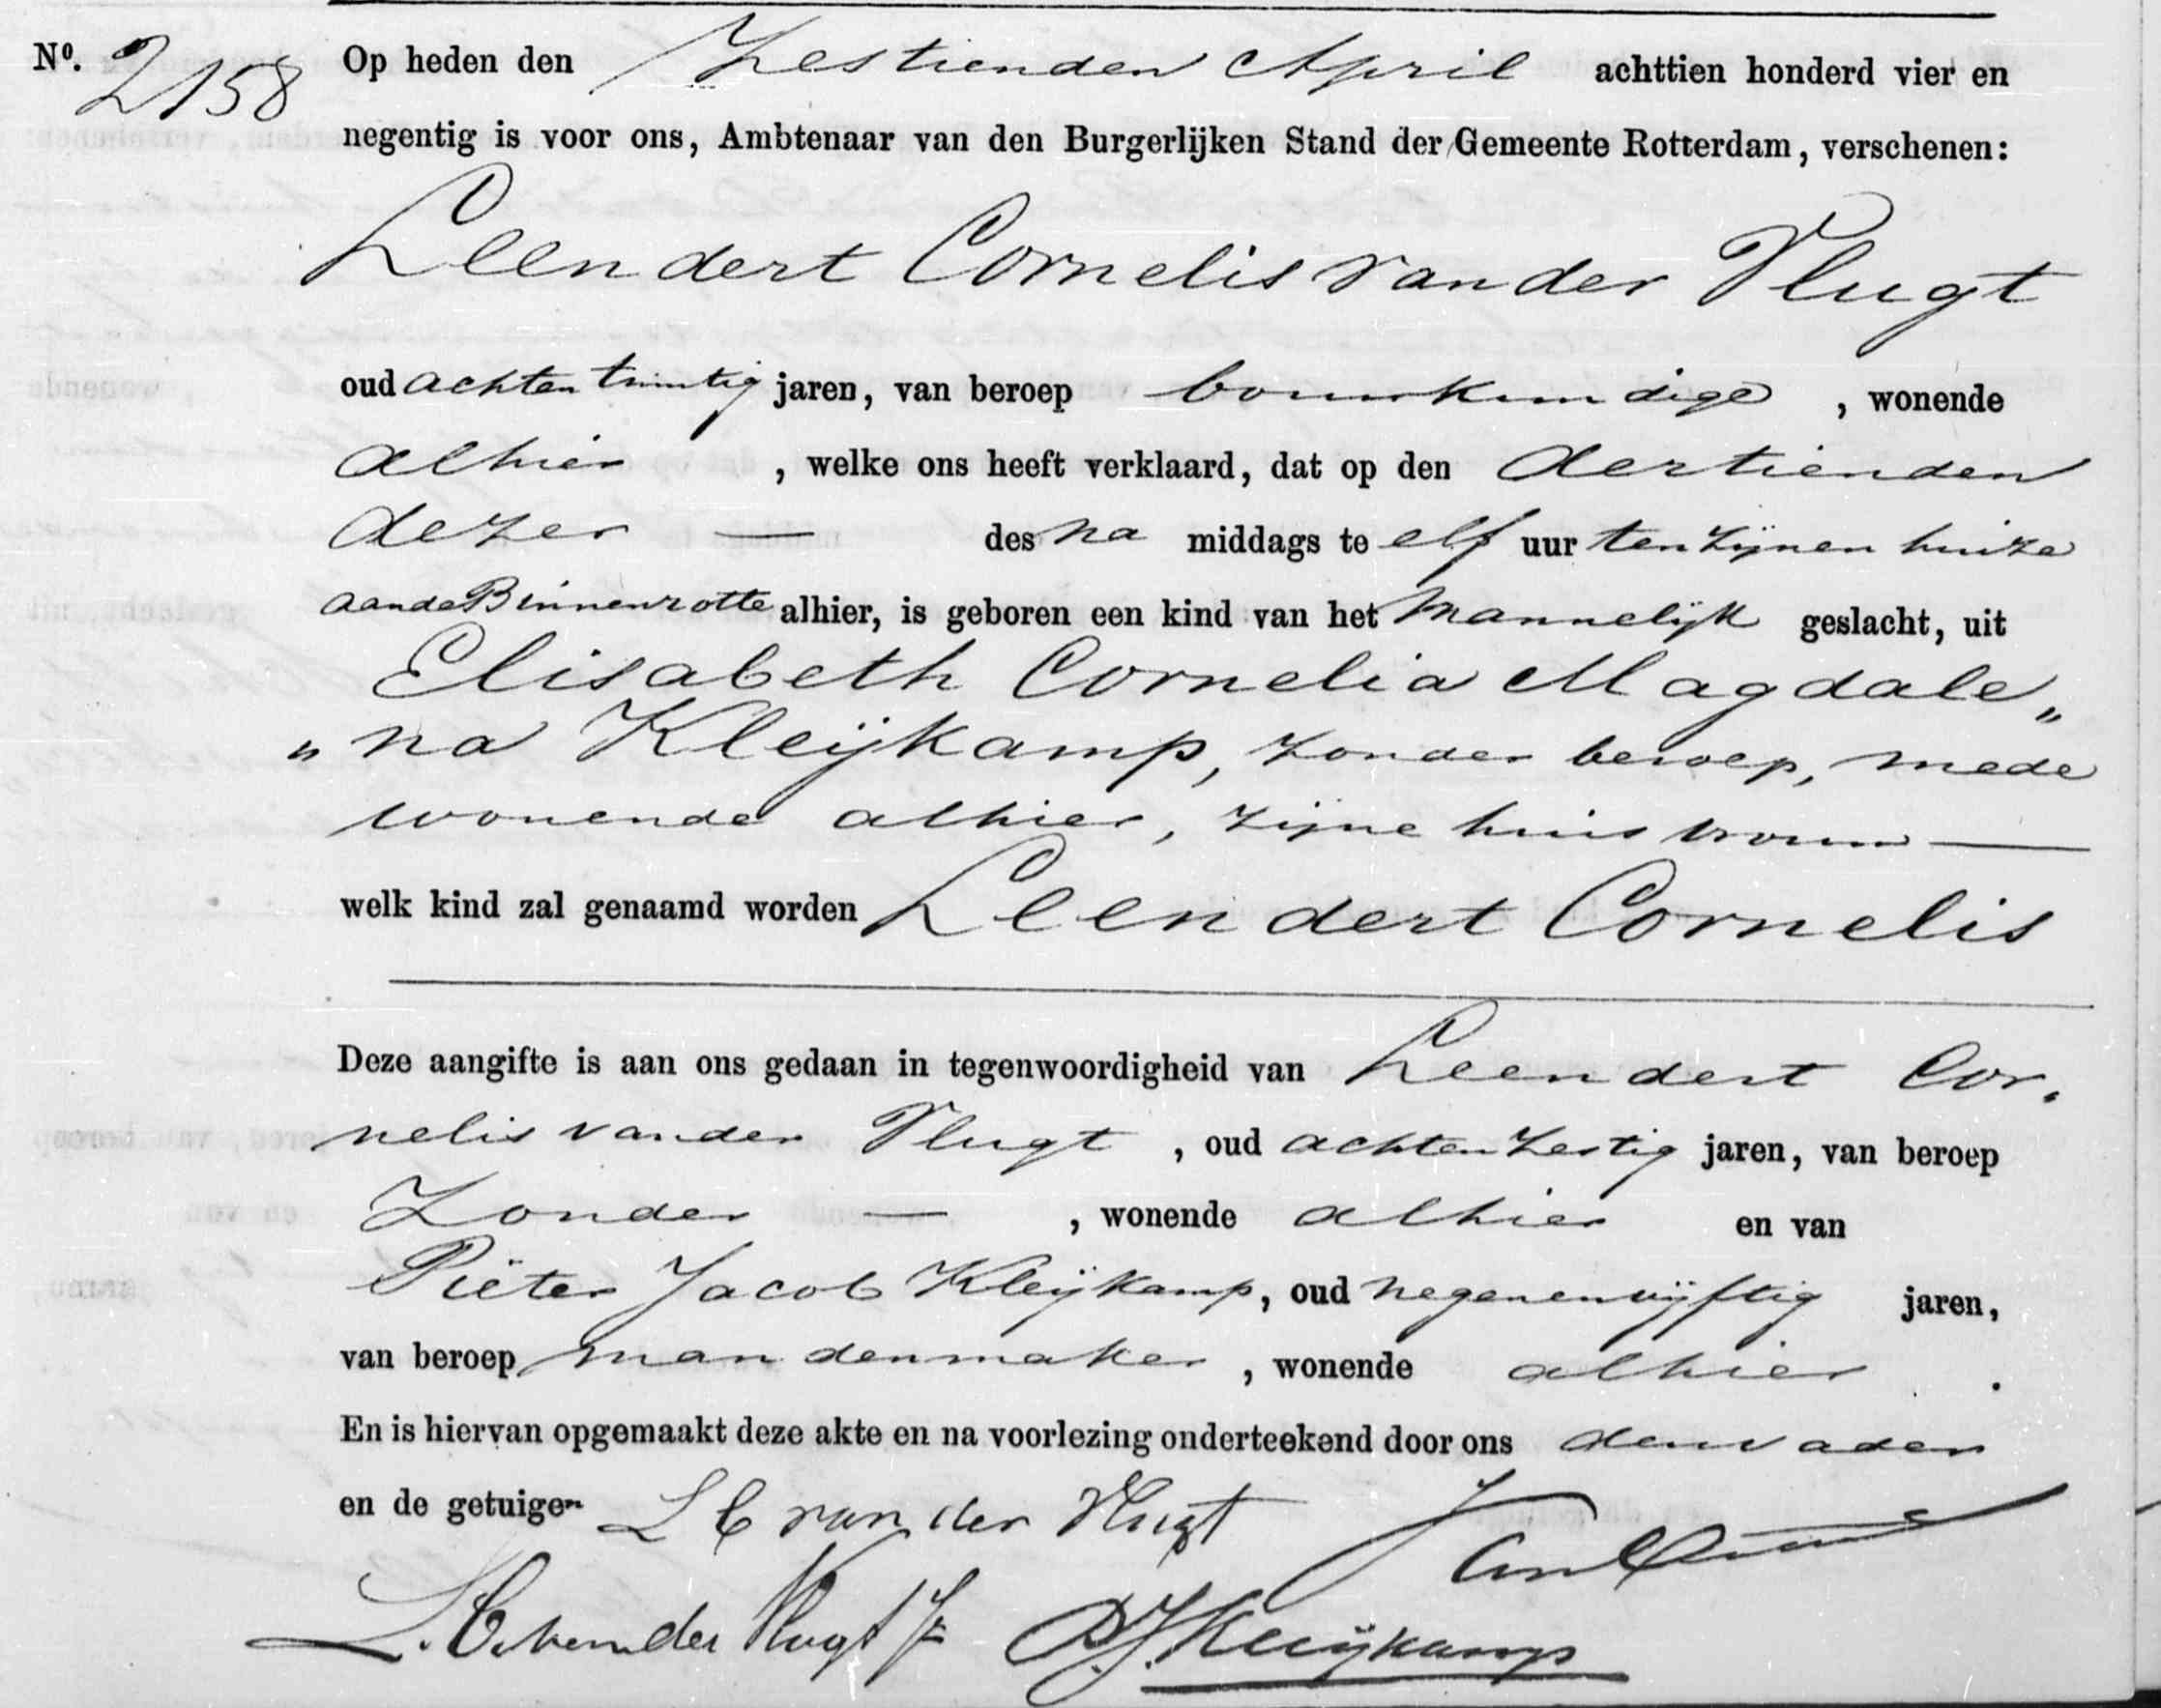 Nº. 2158 Op heden den Zestienden April achttien honderd vier en
negentig is voor ons, Ambtenaar van den Burgerlijken Stand der Gemeente Rotterdam, verschenen:
Leendert Cornelis van der Vlugt
oud achten twintig jaren, van beroep bouwkundige, wonende
alhier, welke ons heeft verklaard, dat op den dertienden
dezer — des na middags te elf uur ten zijnen huize
aan de Binnenrotte alhier, is geboren een kind van het Mannelijk geslacht, uit
Elisabeth Cornelia Magdale„
„na Kleijkamp, zonder beroep, mede
wonende alhier, zijne huisvrouw —
welk kind zal genaamd worden Leendert Cornelis
Deze aangifte is aan ons gedaan in tegenwoordigheid van Leendert Cor.
nelis van der Vlugt, oud achtenzestig jaren, van beroep
Zonder —, wonende alhier en van
Pieter Jacob Kleijkamp, oud negenenvijftig jaren,
van beroep mandenmaker, wonende alhier.
En is hiervan opgemaakt deze akte en na voorlezing onderteekend door ons den vader
en de getuigen L C van der Vlugt
L. C. van der Vlugt Jz P.J. Kleijkamp